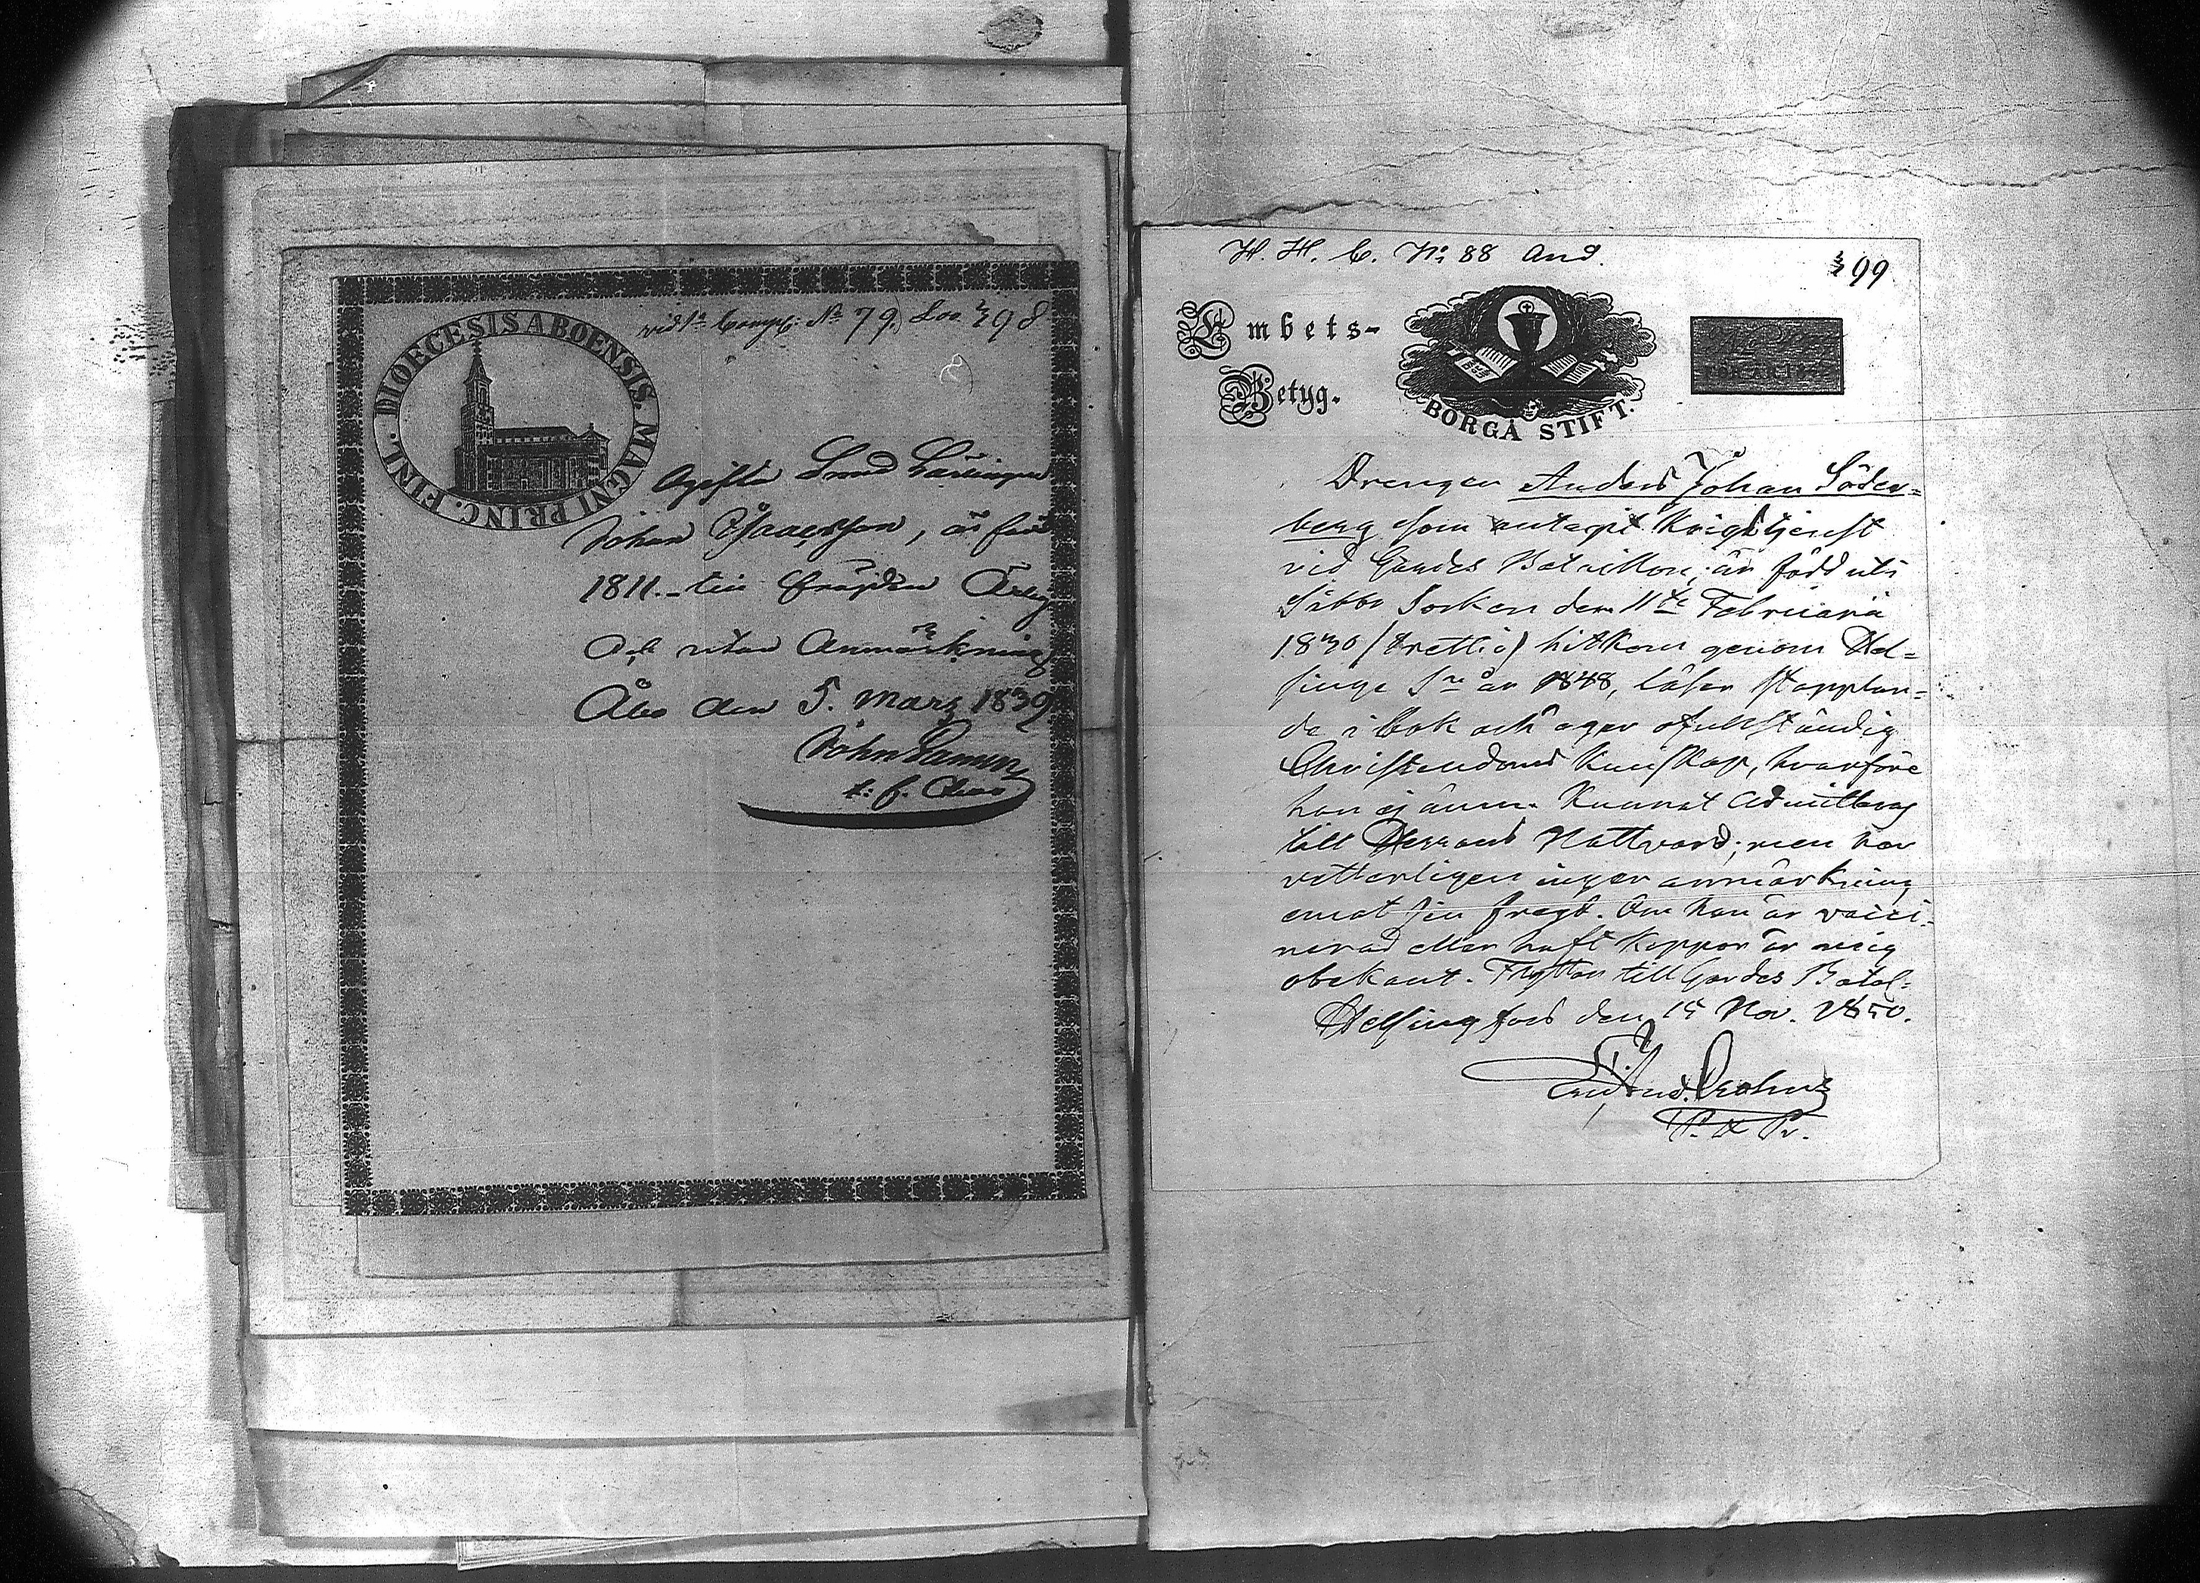 vid 1ª Comp: Nº 79. 398
DIOECESIS ABOENSIS. MAGNI PRINC. FINL.
Smed Lärlingen
Johan Isaacsson, är född
1811. till frejden Ärlig
och utan Anmärkning
Åbo den 5. Mars 1839
John
H. H. C. Nº 88 And.
399
Embets-
Betyg.
BORGÅ STIFT.
Drengen Anders Johan Söder=
berg som antagit Krigstjenst
vid Gardes Bataillon, är född uti
Sibbo Socken den 11te Februarii
1830 (trettio) hitkom genom Hel=
singe Sn år 1848, läser stapplan=
de i bok och äger ofullständig
Christendoms Kunskap, hvarföre
han ej ännu kunnat admitteras
till Herrans Nattvard; men har
vetterligen ingen anmärkning
emot sin frejd. Om han är vacci=
nerad eller haft koppor är mig
obekant. Flyttar till Gardes Batal=
Helsingfors den 15 Nov. 1850.